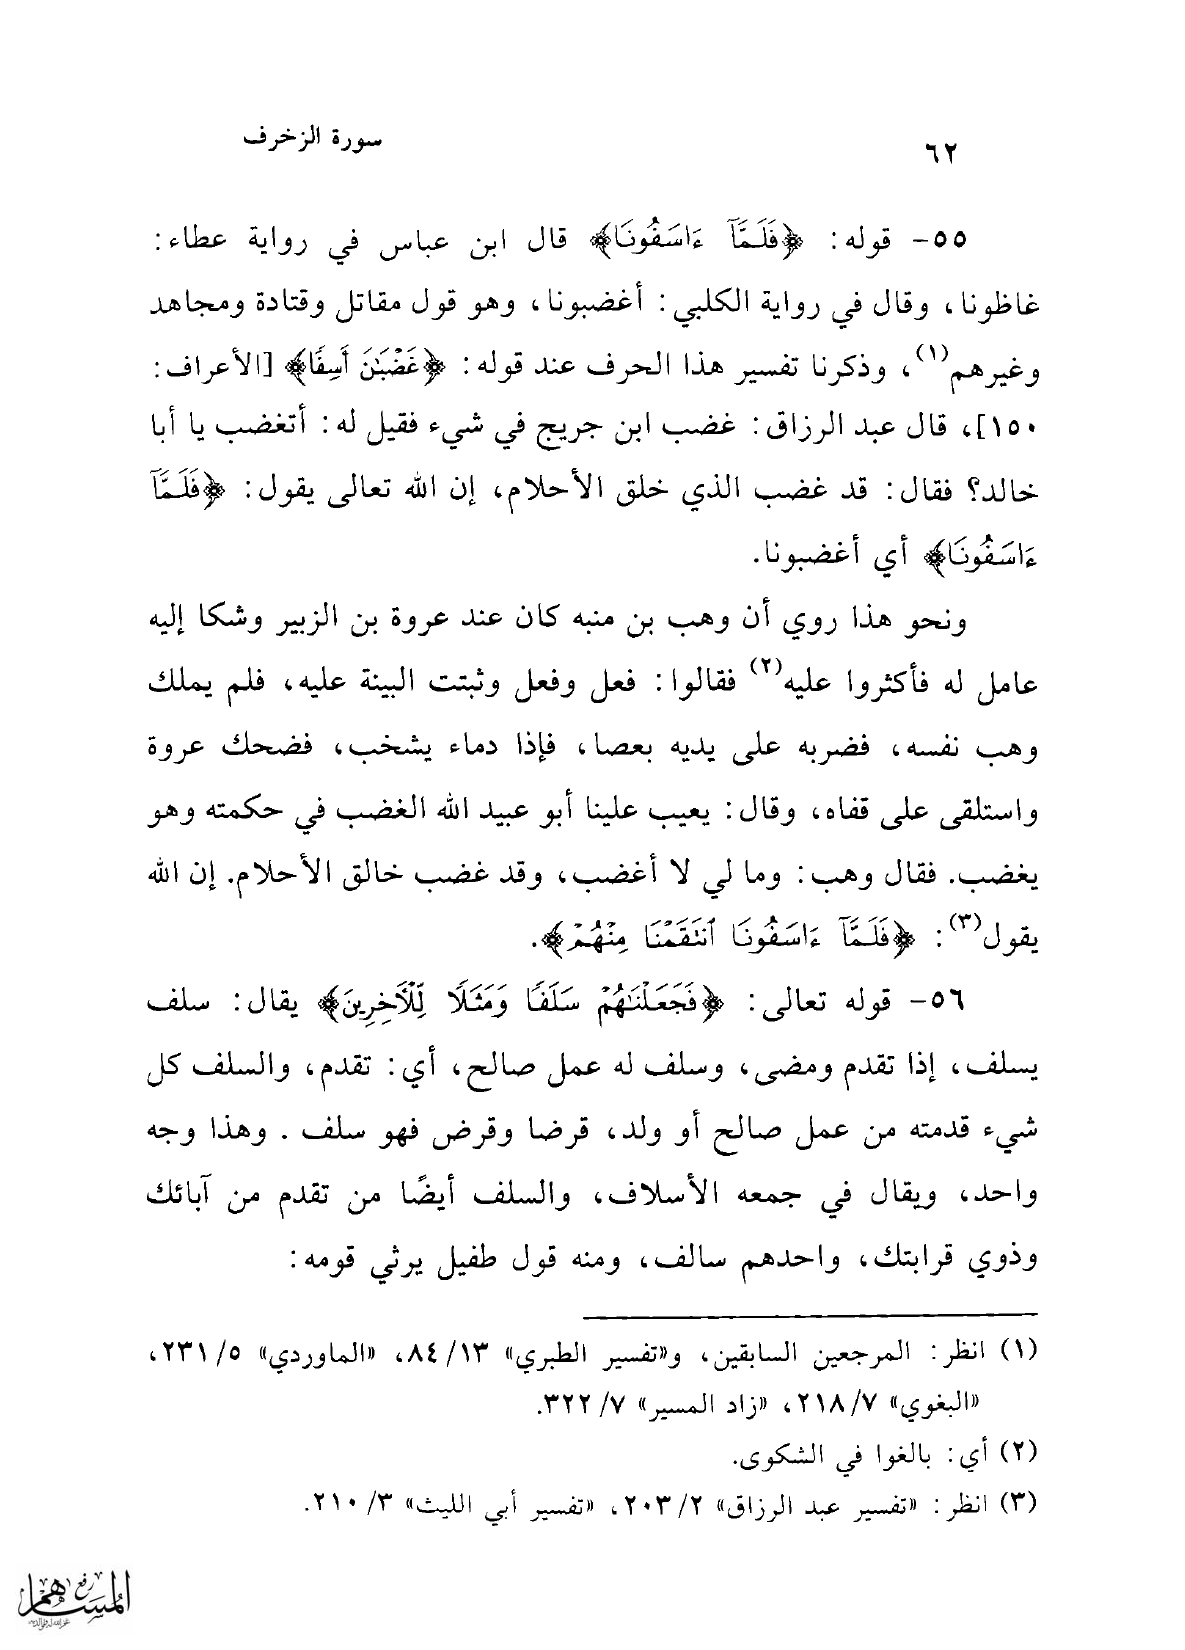 ٦٢
سورة الزخرف
٥٥- قوله: ﴿فَلَمَّآ ءَاسَفُونَا﴾ قال ابن عباس في رواية عطاء:
غاظونا، وقال في رواية الكلبي: أغضبونا، وهو قول مقاتل وقتادة ومجاهد
وغيرهم(١)، وذكرنا تفسير هذا الحرف عند قوله: ﴿غَضْبَٰنَ أَسِفًا﴾ [الأعراف:
١٥٠]، قال عبد الرزاق: غضب ابن جريج في شيء فقيل له: أتغضب يا أبا
خالد؟ فقال: قد غضب الذي خلق الأحلام، إن الله تعالى يقول: ﴿فَلَمَّآ
ءَاسَفُونَا﴾ أي أغضبونا.
ونحو هذا روي أن وهب بن منبه كان عند عروة بن الزبير وشكا إليه
عامل له فأكثروا عليه(٢) فقالوا: فعل وفعل وثبتت البينة عليه، فلم يملك
وهب نفسه، فضربه على يديه بعصا، فإذا دماء يشخب، فضحك عروة
واستلقى على قفاه، وقال: يعيب علينا أبو عبيد الله الغضب في حكمته وهو
يغضب. فقال وهب: وما لي لا أغضب، وقد غضب خالق الأحلام. إن الله
يقول(٣): ﴿فَلَمَّآ ءَاسَفُونَا ٱنتَقَمْنَا مِنْهُمْ﴾.
٥٦- قوله تعالى: ﴿فَجَعَلْنَٰهُمْ سَلَفًا وَمَثَلًا لِّلْآخِرِينَ﴾ يقال: سلف
يسلف، إذا تقدم ومضى، وسلف له عمل صالح، أي: تقدم، والسلف كل
شيء قدمته من عمل صالح أو ولد، قرضا وقرض فهو سلف . وهذا وجه
واحد، ويقال في جمعه الأسلاف، والسلف أيضًا من تقدم من آبائك
وذوي قرابتك، واحدهم سالف، ومنه قول طفيل يرثي قومه:
(١) انظر: المرجعين السابقين، و«تفسير الطبري» ١٣/ ٨٤، «الماوردي» ٥/ ٢٣١،
«البغوي» ٧/ ٢١٨، «زاد المسير» ٧/ ٣٢٢.
(٢) أي: بالغوا في الشكوى.
(٣) انظر: «تفسير عبد الرزاق» ٢/ ٢٠٣، «تفسير أبي الليث» ٣/ ٢١٠.
رفع
المساهم